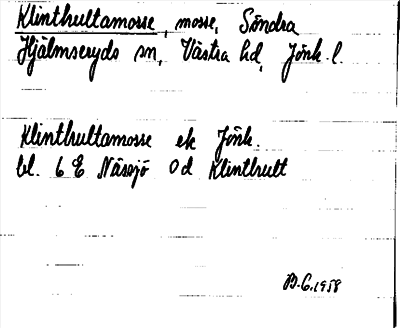 Klinthultamosse, mosse, Söndra
Hjälmseryds sn, Västra hd, Jönk. l.
Klinthultamosse ek Jönk.
bl. 6 E Nässjö 0d Klinthult
B.G. 1958